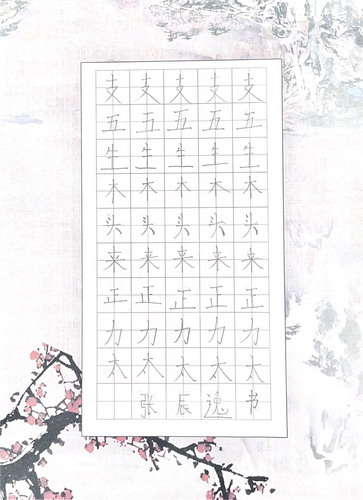 支支支支支
五五五五五
生生生生生
木木木木木
头头头头头
来来来来来
正正正正正
力力力力力
太太太太太
张辰逸书